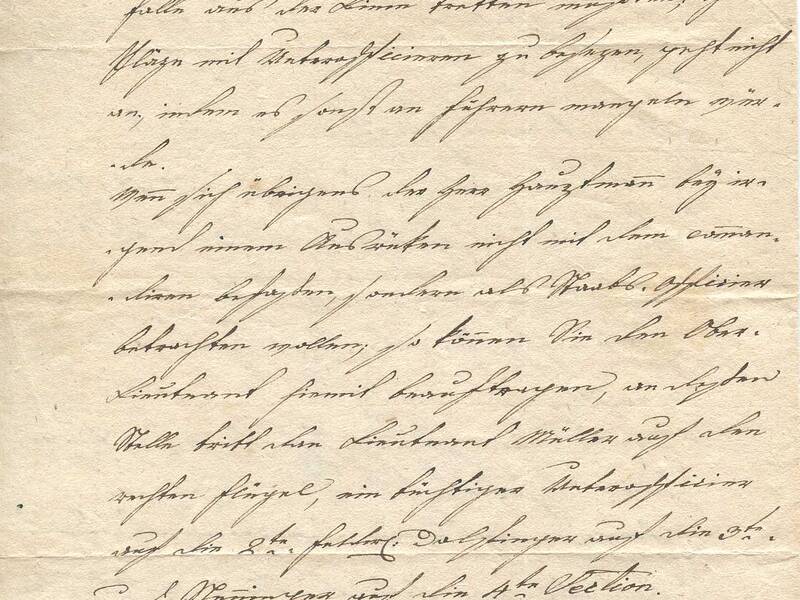 falle aus der Linie tretten
Pläze mit Unterofficieren zu besezen, geht nicht
an, indem es sonst an Führern mangeln wür-
-de.
Wenn sich übrigens der Herr Hauptmann bey ir-
-gend einem Ausrüken nicht mit dem comman-
-diren befaßen, sondern als Staabs-Officier
betrachten wollen; so können Sie den Ober-
Lieutenant hiemit beauftragen, an deßen
Stelle tritt dan Lieutenant Müller auf den
rechten Flügel, ein tüchtiger Unterofficier
auf die 2te. auf die 3te.
auf die 4te Section.